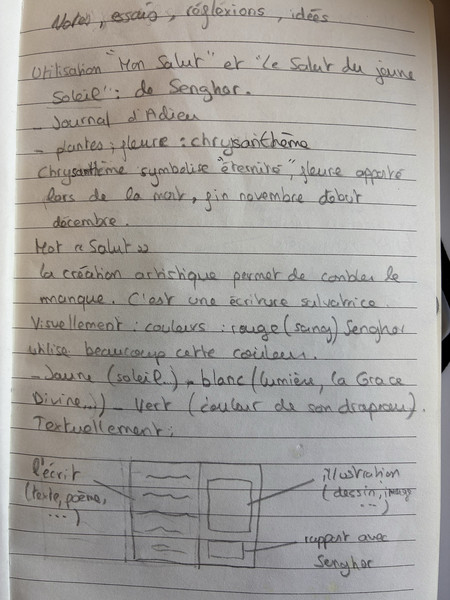 Notes, essais, réfléxions, idées
Utilisation "Mon Salut" et "le Salut du jeune
Soleil": de Senghor.
- Journal d'Adieu
- plantes; fleure : chrysanthème
Chrysanthème symbolise "éternité", fleure apporté
lors de la mort, fin novembre début
décembre.
Mot « Salut »
la création artistique permet de combler le
manque. C'est une écriture salvatrice.
Visuellement : couleurs : rouge (sang) Senghor
utilise beaucoup cette couleur.
- Jaune (soleil..) - blanc (lumière, la Grace
Divine...) - Vert (couleur de son drapeau).
Textuellement :
l'écrit
(texte, poème,
...)
illustration
(dessin, image
...)
rapport avec
Senghor